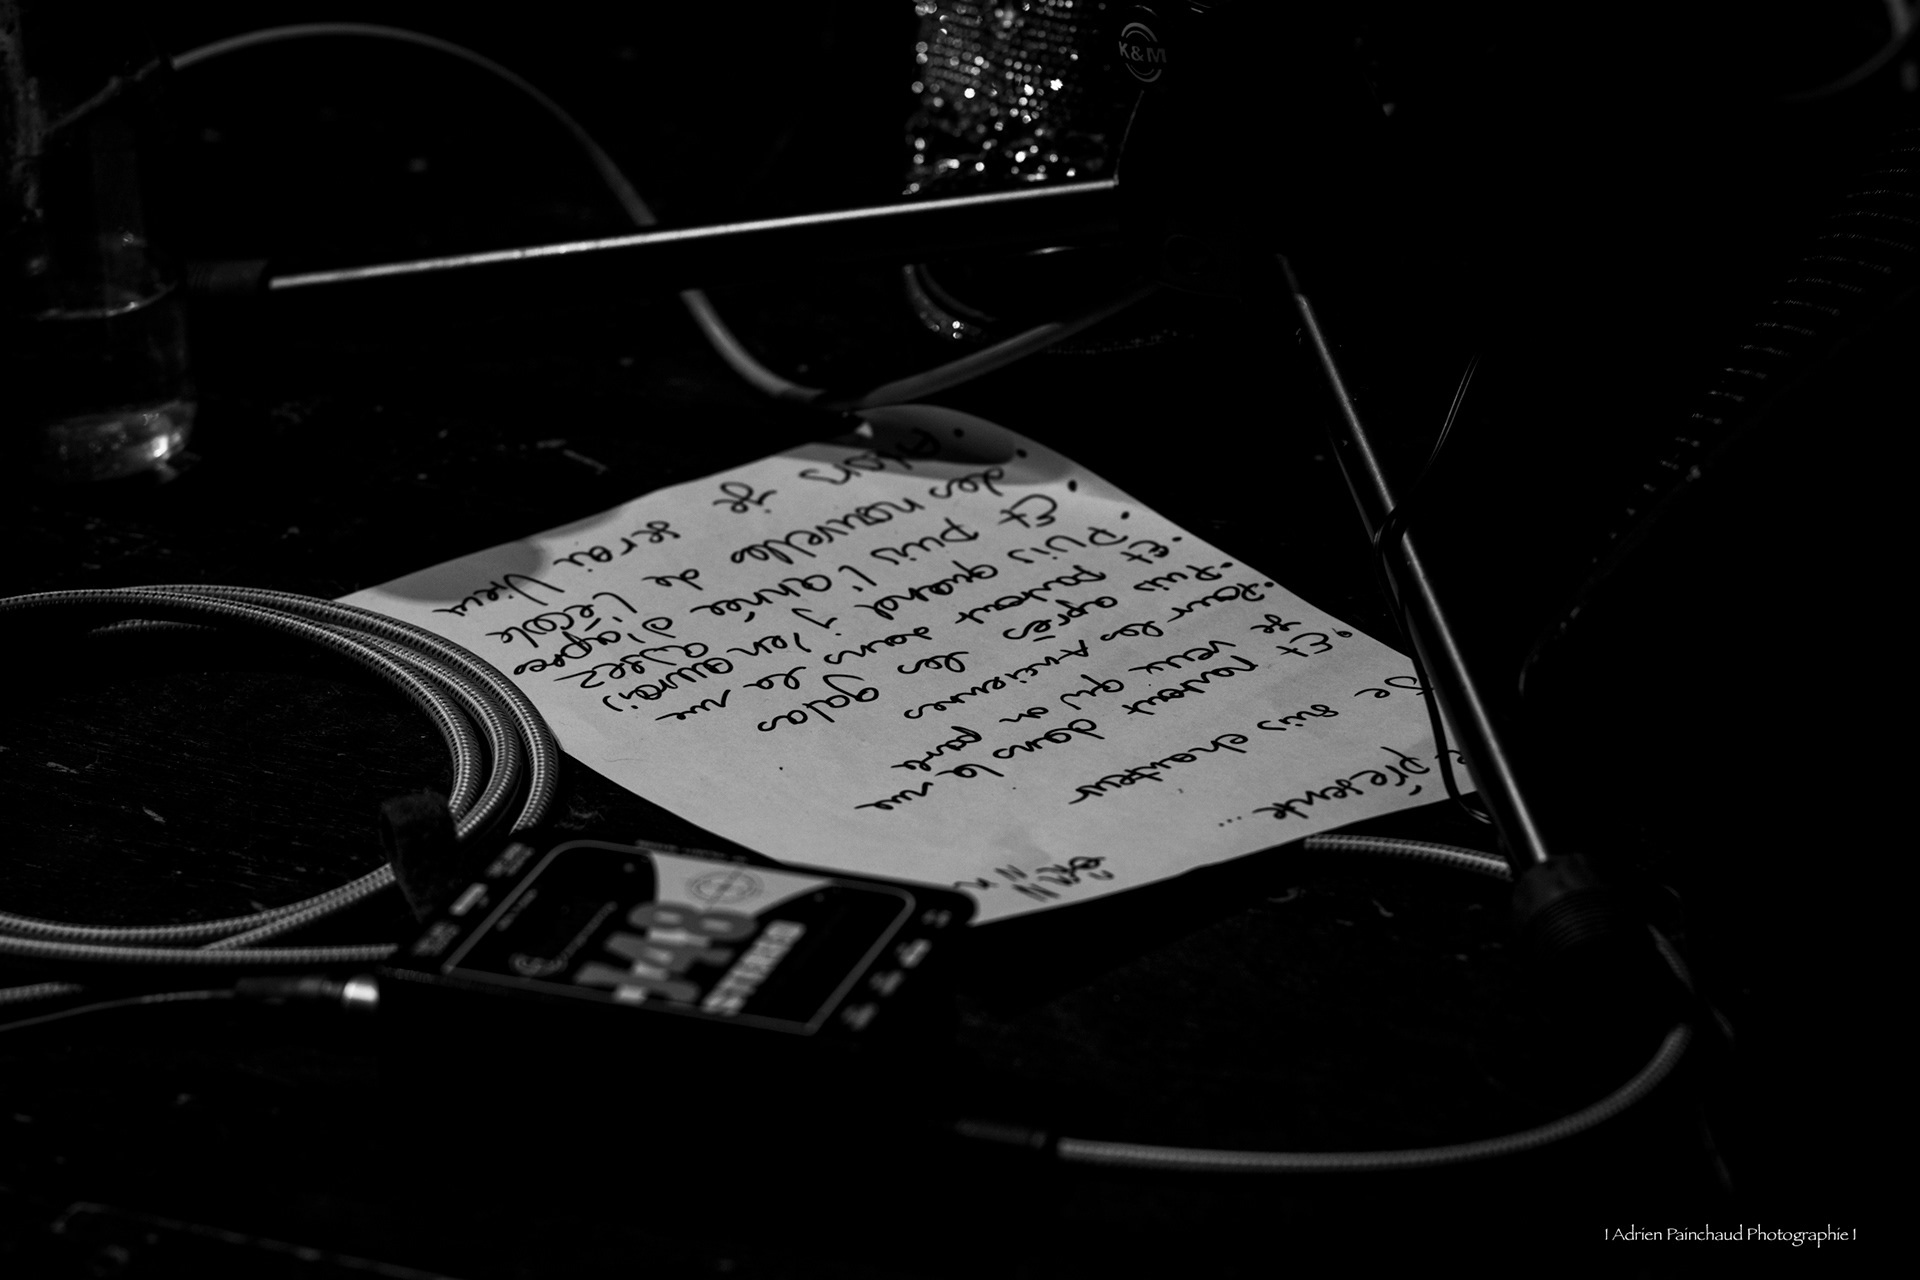 Présente ...
Je suis chanteur
• Et partout dans la rue
Je veux qu'on parle
• Pour les Anciennes
• Puis après les galas
• Et partout dans la rue
• Puis quand j'en aurai
• Et puis l'année d'après
• des nouvelles de l'école
• Alors je serai vieux
K&M
J48
STEREO
I Adrien Painchaud Photographie I